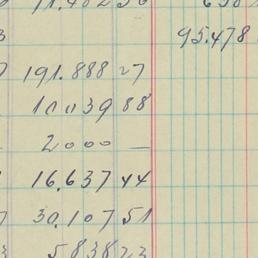 95.478
191.888 27
10039 88
2000 —
16.637 44
30.107 51
5838 23